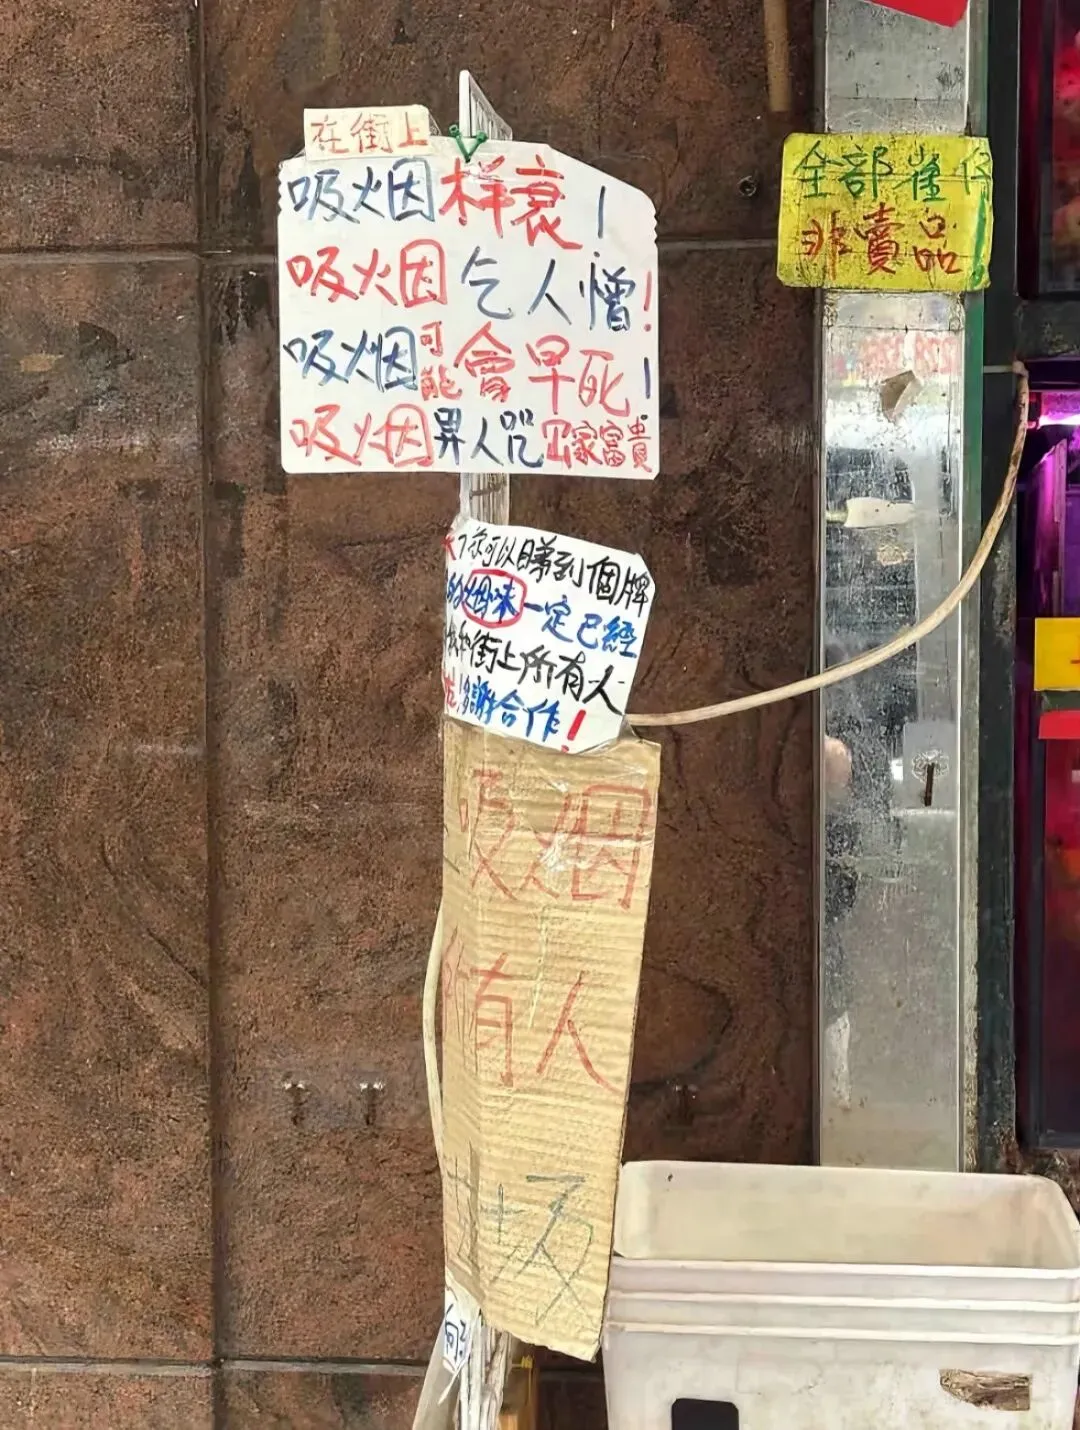 在街上
吸烟样衰!
吸烟乞人憎!
吸烟可能會早死!
吸烟畀人咒冚家富貴
你可以睇到個牌
烟味一定已經
街上所有人
多謝合作!
吸烟
所有人
全部雀仔
非賣品